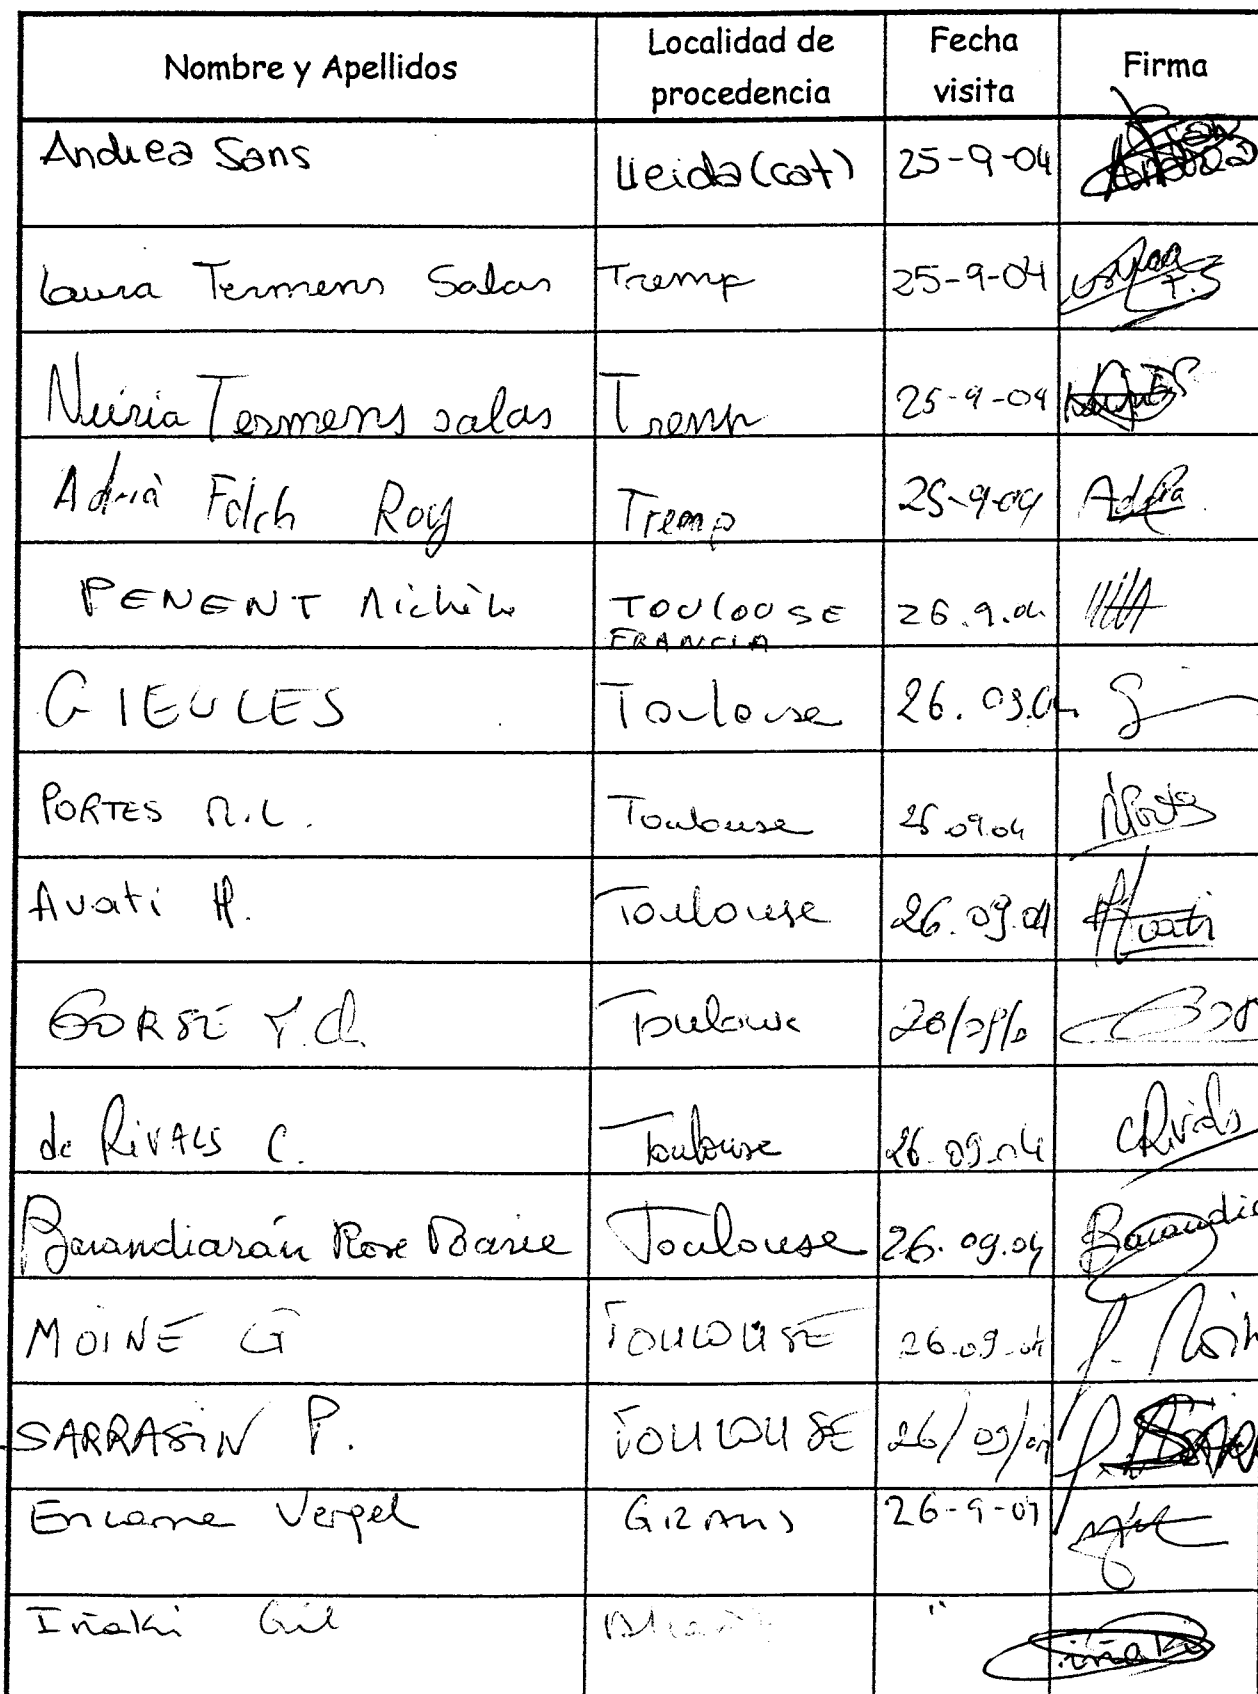 Nombre y Apellidos Localidad de procedencia Fecha visita Firma
Andrea Sans Lleida (cat) 25-9-04 Andrea
Laura Termens Salas Tremp 25-9-04 T.S
Núria Termens salas Tremp 25-9-04
Adrià Folch Roy Tremp 25-9-04 Adrià
PENENT Michèle TOULOUSE FRANCIA 26.9.04
GIEULES Toulouse 26.09.04
PORTES M.L. Toulouse 09.04
Avati H. Toulouse 26.09.04 Avati
GORSE Toulouse
de RIVALS C. Toulouse 26.09.04 CRivals
Barandiarán Rose Marie Toulouse 26.09.04 Barandia
MOINE G TOULOUSE 26.09.04
SARRASIN P. TOULOUSE 26/09/04
Encarna Vergel 26-9-04
Iñaki Gil " iñaki